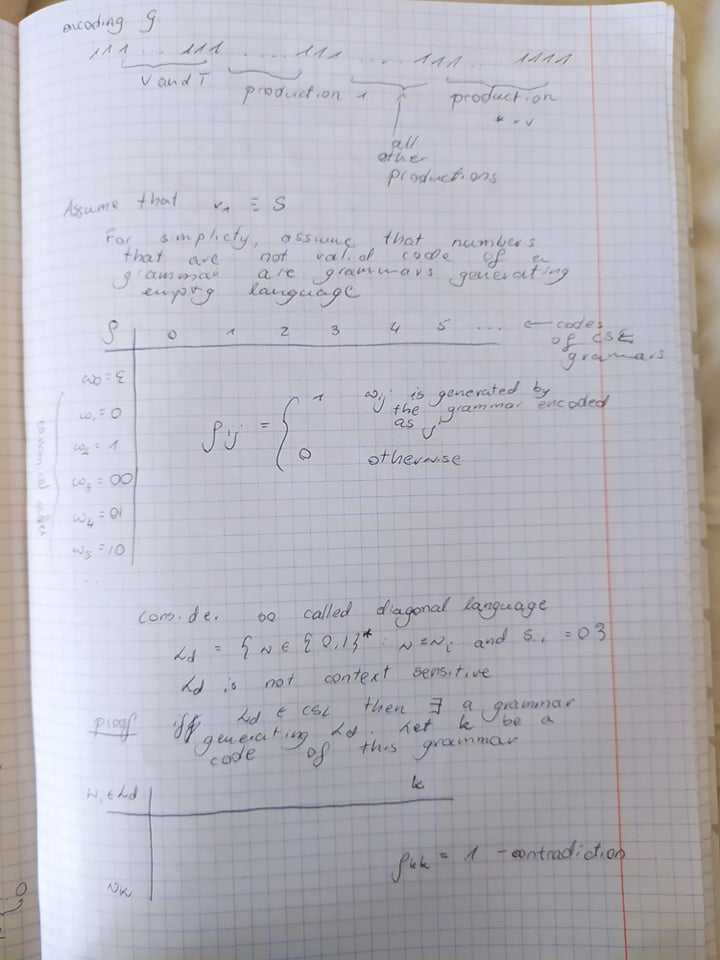 encoding G
111 ... 111 .... 111 ... 111 ... 1111
V and T
production 1
production
# = v
all
other
productions
Assume that v₁ ≡ S
For simplicty, assume that numbers
that are not valid code of a
grammar are grammars generating
empty language
ρ 0 1 2 3 4 5 ... ← codes
of CSL
grammars
ω0 = ε
ω1 = 0
ω2 = 1
ω3 = 00
ω4 = 01
ω5 = 10
...
canonical order
ρij = { 1 ωij is generated by
the grammar encoded
as j
0 otherwise
consider so called diagonal language
Ld = { w ∈ {0,1}* : w = wi and sii = 0}
Ld is not context sensitive
proof iff Ld ∈ CSL then ∃ a grammar
generating Ld. Let k be a
code of this grammar
wi ∈ Ld k
wk
ρkk = 1 - contradiction